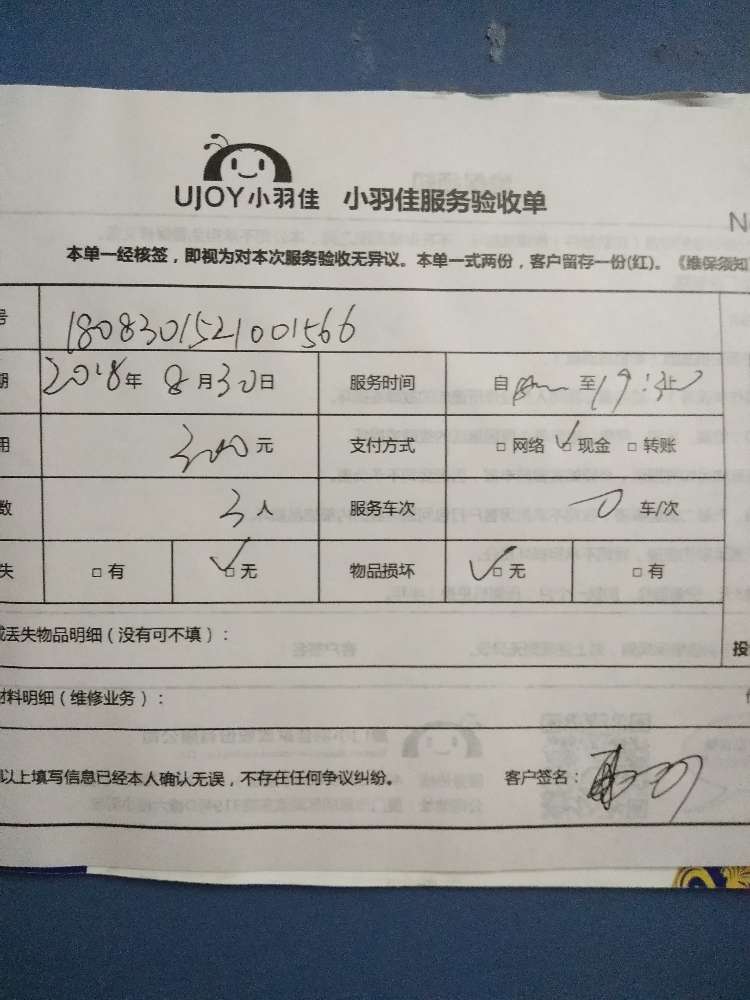 UJOY小羽佳 小羽佳服务验收单
N
本单一经核签，即视为对本次服务验收无异议。本单一式两份，客户留存一份(红)。《维保须知
号 1808301521001566
期 2018年 8月30日 服务时间 自 至19:30止
用 300元 支付方式 □网络 ☑现金 □转账
数 3人 服务车次 0车/次
失 □有 ☑无 物品损坏 ☑无 □有
或丢失物品明细（没有可不填）： 投
材料明细（维修业务）：
以上填写信息已经本人确认无误，不存在任何争议纠纷。 客户签名：